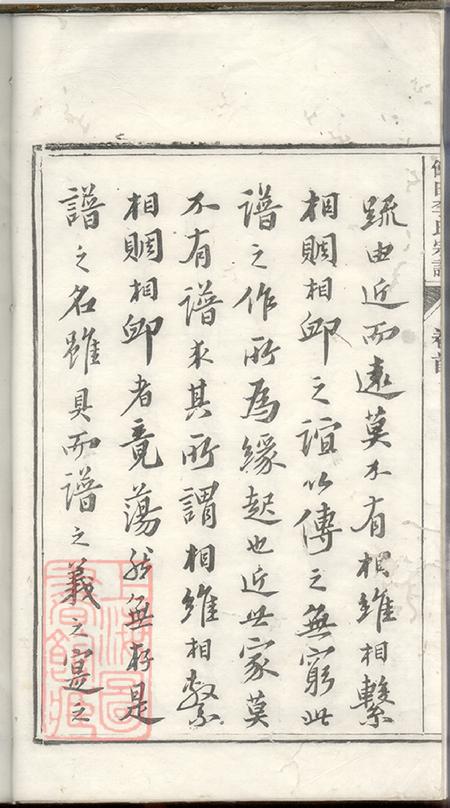 疏由近而遠莫不有相維相繫
相賙相卹之誼以傳之無窮此
譜之作所為緣起也近世家莫
不有譜求其所謂相維相繫
相賙相卹者竟蕩然無存是
譜之名雖具而譜之義之寔之
李氏宗譜
卷首
上海圖書館藏